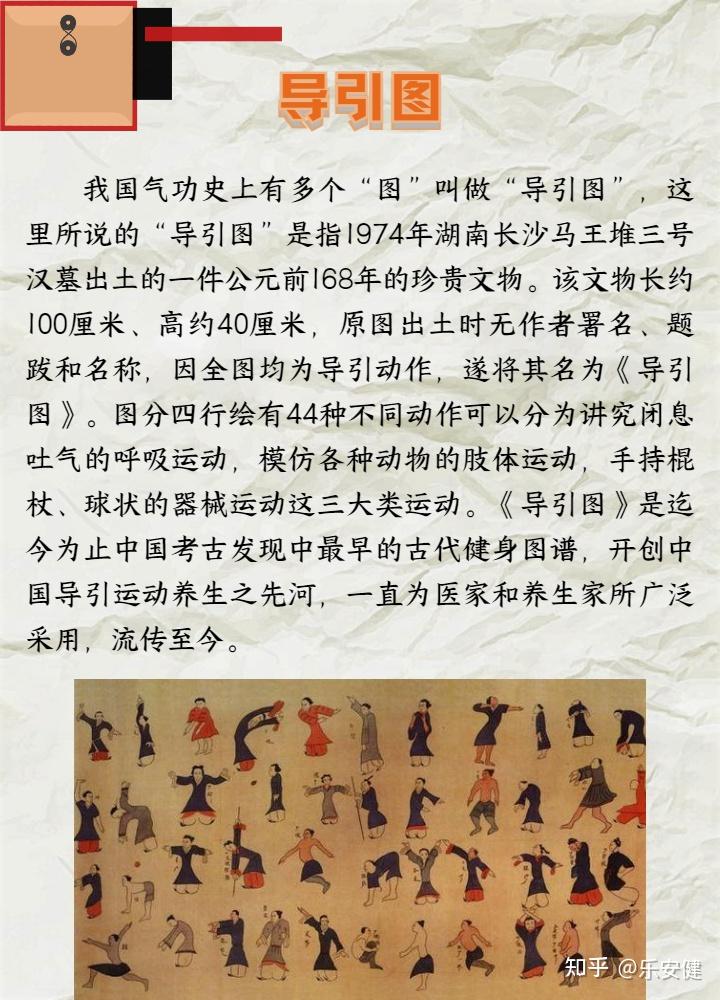 导引图
我国气功史上有多个“图”叫做“导引图”，这
里所说的“导引图”是指1974年湖南长沙马王堆三号
汉墓出土的一件公元前168年的珍贵文物。该文物长约
100厘米、高约40厘米，原图出土时无作者署名、题
跋和名称，因全图均为导引动作，遂将其名为《导引
图》。图分四行绘有44种不同动作可以分为讲究闭息
吐气的呼吸运动，模仿各种动物的肢体运动，手持棍
杖、球状的器械运动这三大类运动。《导引图》是迄
今为止中国考古发现中最早的古代健身图谱，开创中
国导引运动养生之先河，一直为医家和养生家所广泛
采用，流传至今。
知乎 @乐安健